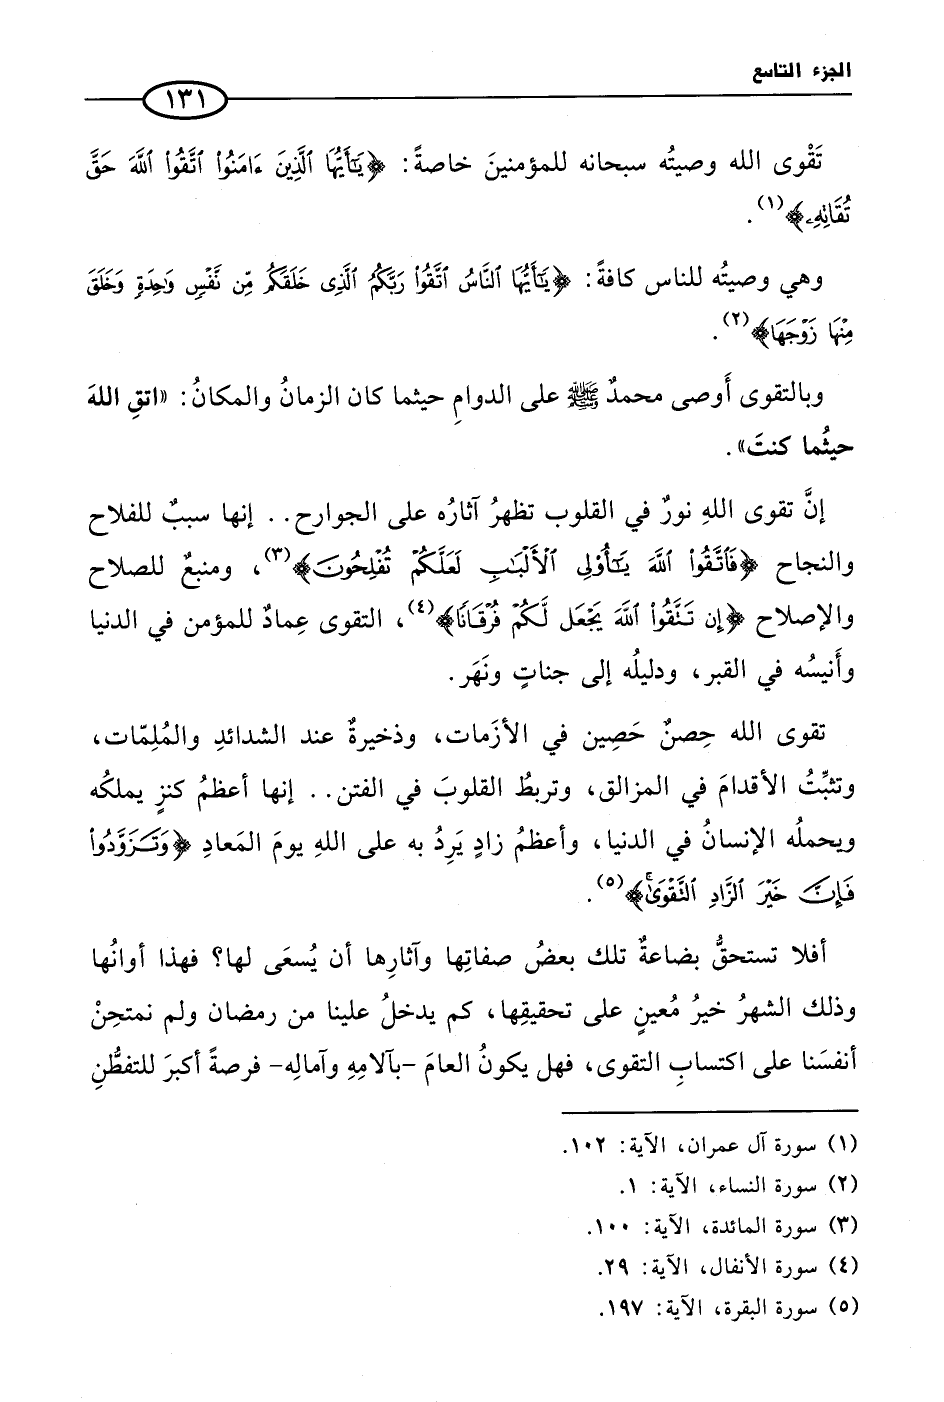 الجزء التاسع
١٣١
تَقْوى الله وصيتُه سبحانه للمؤمنينَ خاصةً: ﴿يَٰٓأَيُّهَا ٱلَّذِينَ ءَامَنُوا۟ ٱتَّقُوا۟ ٱللَّهَ حَقَّ
تُقَاتِهِۦ﴾(١).
وهي وصيتُه للناس كافةً: ﴿يَٰٓأَيُّهَا ٱلنَّاسُ ٱتَّقُوا۟ رَبَّكُمُ ٱلَّذِى خَلَقَكُم مِّن نَّفْسٍ وَٰحِدَةٍ وَخَلَقَ
مِنْهَا زَوْجَهَا﴾(٢).
وبالتقوى أَوصى محمدٌ ﷺ على الدوامِ حيثما كان الزمانُ والمكانُ: «اتقِ اللهَ
حيثُما كنتَ».
إنَّ تقوى اللهِ نورٌ في القلوب تظهرُ آثارُه على الجوارح.. إنها سببٌ للفلاح
والنجاح ﴿فَٱتَّقُوا۟ ٱللَّهَ يَٰٓأُو۟لِى ٱلْأَلْبَٰبِ لَعَلَّكُمْ تُفْلِحُونَ﴾(٣)، ومنبعٌ للصلاح
والإصلاح ﴿إِن تَتَّقُوا۟ ٱللَّهَ يَجْعَل لَّكُمْ فُرْقَانًا﴾(٤)، التقوى عِمادٌ للمؤمن في الدنيا
وأَنيسُه في القبر، ودليلُه إلى جناتٍ ونَهَر.
تقوى الله حِصنٌ حَصِين في الأزَمات، وذخيرةٌ عند الشدائدِ والمُلِمّات،
وتثبِّتُ الأقدامَ في المزالق، وتربطُ القلوبَ في الفتن.. إنها أعظمُ كنزٍ يملكُه
ويحملُه الإنسانُ في الدنيا، وأعظمُ زادٍ يَرِدُ به على اللهِ يومَ المَعادِ ﴿وَتَزَوَّدُوا۟
فَإِنَّ خَيْرَ ٱلزَّادِ ٱلتَّقْوَىٰ﴾(٥).
أفلا تستحقُّ بضاعةٌ تلك بعضُ صفاتِها وآثارِها أن يُسعَى لها؟ فهذا أوانُها
وذلك الشهرُ خيرُ مُعينٍ على تحقيقِها، كم يدخلُ علينا من رمضان ولم نمتحِنْ
أنفسَنا على اكتسابِ التقوى، فهل يكونُ العامَ -بآلامِهِ وآمالِه- فرصةً أكبرَ للتفطُّنِ
(١) سورة آل عمران، الآية: ١٠٢.
(٢) سورة النساء، الآية: ١.
(٣) سورة المائدة، الآية: ١٠٠.
(٤) سورة الأنفال، الآية: ٢٩.
(٥) سورة البقرة، الآية: ١٩٧.